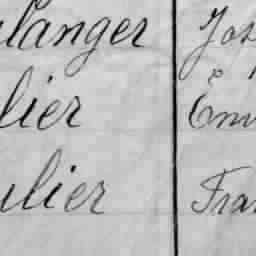 ulanger Jos
lier Émi
ulier Fran